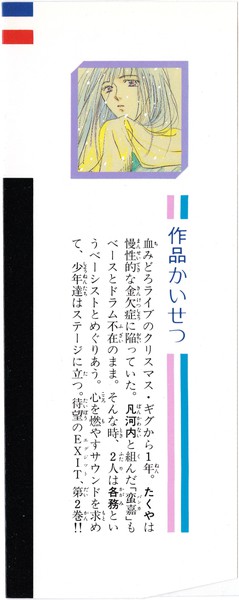 作品かいせつ
血みどろライブのクリスマス・ギグから1年。たくやは
慢性的な金欠症に陥っていた。凡河内と組んだ「蛮嘉」も
ベースとドラム不在のまま。そんな時、2人は各務とい
うベーシストとめぐりあう。心を燃やすサウンドを求め
て、少年達はステージに立つ。待望のEXIT、第2巻!!